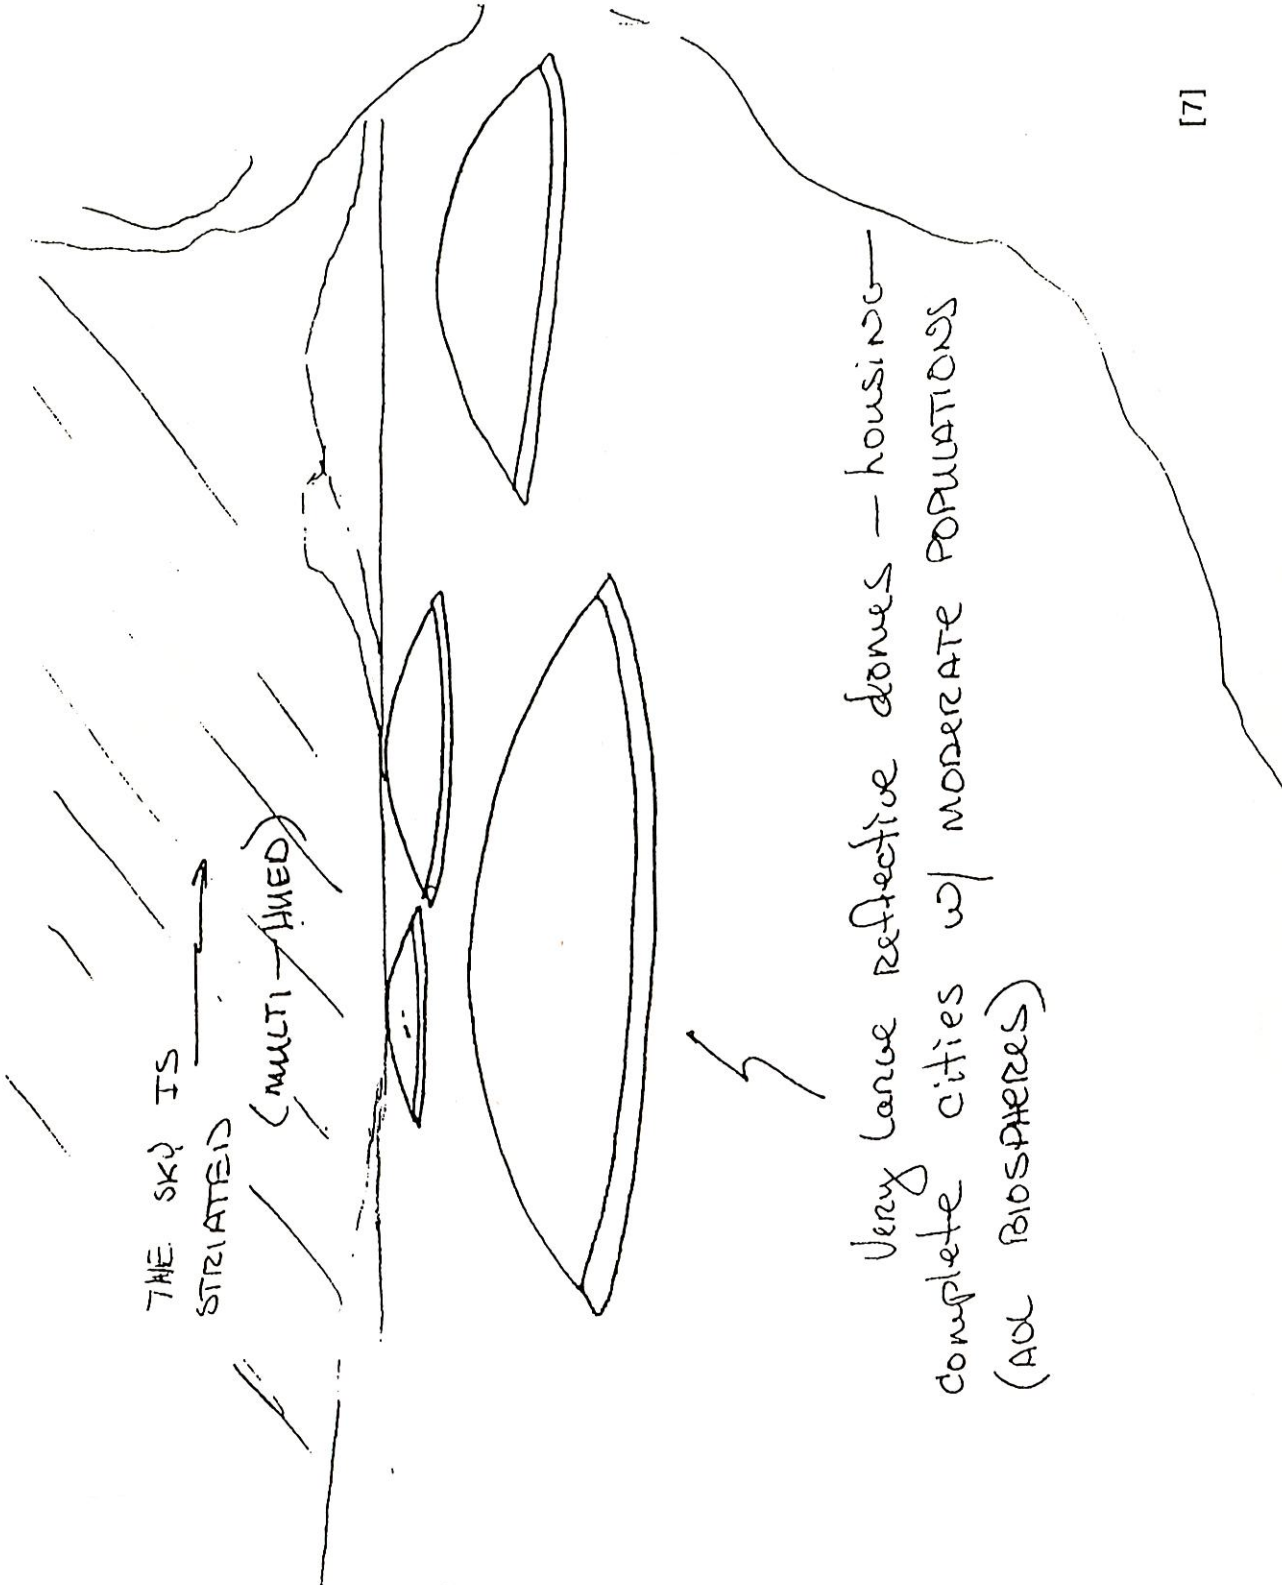 THE SKY IS
STRIATED
(MULTI-HUED)
Very Large Reflective domes — housing —
complete cities w/ MODERATE POPULATIONS
(All BIOSPHERES)
[7]